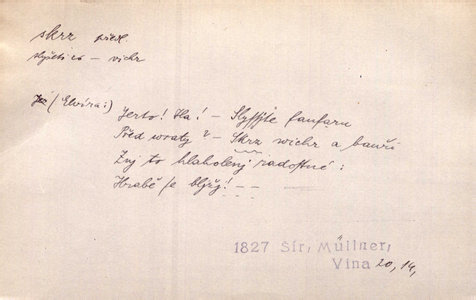 skrz předl.
slyšeti co – vichr
(Elvíra:) Jerto! Ha! – Slyssjte fanfaru
Před wraty? – Skrz wichr a bauři
Znj to hlaholenj radostné:
Hrabě se bljžj! – –
1827 Šír, Müllner,
Vina 20, 14,